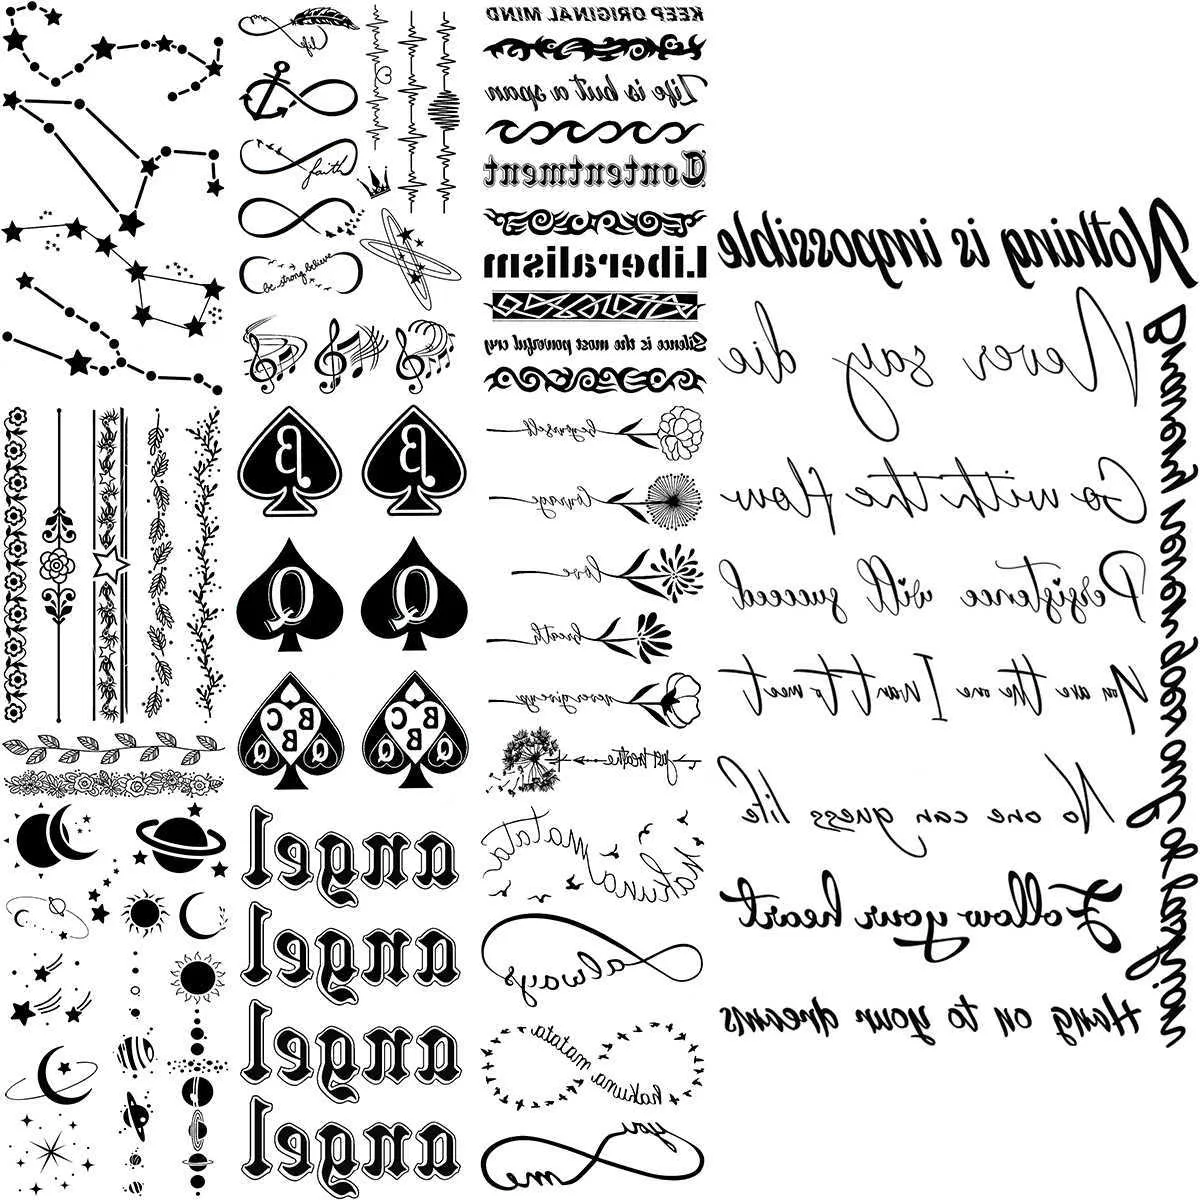 life
faith
be strong believe
KEEP ORIGINAL MIND
Life is but a span
Contentment
Liberalism
Silence is the most powerful cry
be yourself
courage
love
breath
never give up
just breathe
hakuna matata
always
hakuna matata
you
me
B
B
Q
Q
B C B Q Q
B C B Q Q
angel
angel
angel
angel
Nothing is impossible
Never say die
Go with the flow
Persistence will succeed
You are the one I want to meet
No one can guess life
Follow your heart
Hang on to your dreams